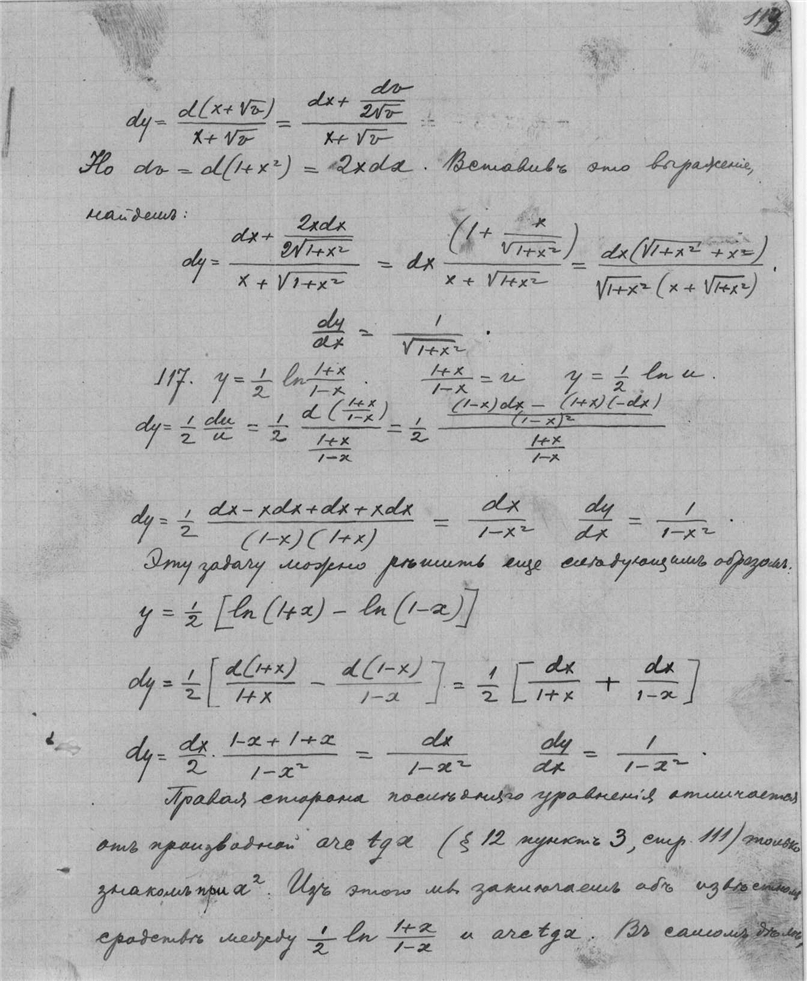 113
dy = d(x+√v)/(x+√v) = (dx + dv/(2√v))/(x+√v) =
Но dv = d(1+x²) = 2xdx. Вставивъ это выраженіе,
найдемъ:
dy = (dx + 2xdx/(2√(1+x²)))/(x+√(1+x²)) = dx (1 + x/√(1+x²))/(x+√(1+x²)) = dx(√(1+x²) + x²)/(√(1+x²)(x+√(1+x²))).
dy/dx = 1/√(1+x²).
117. y = 1/2 ln (1+x)/(1-x). (1+x)/(1-x) = u y = 1/2 ln u.
dy = 1/2 du/u = 1/2 d((1+x)/(1-x))/((1+x)/(1-x)) = 1/2 (((1-x)dx - (1+x)(-dx))/(1-x)²)/((1+x)/(1-x))
dy = 1/2 (dx - xdx + dx + xdx)/((1-x)(1+x)) = dx/(1-x²) dy/dx = 1/(1-x²).
Эту задачу можно рѣшить еще слѣдующимъ образомъ.
y = 1/2 [ln(1+x) - ln(1-x)]
dy = 1/2 [d(1+x)/(1+x) - d(1-x)/(1-x)] = 1/2 [dx/(1+x) + dx/(1-x)]
dy = dx/2 · (1-x+1+x)/(1-x²) = dx/(1-x²) dy/dx = 1/(1-x²).
Правая сторона послѣдняго уравненія отличается
отъ производной arc tg x (§ 12 пунктъ 3, стр. 111) только
знакомъ при x². Изъ этого мы заключаемъ объ извѣстномъ
сродствѣ между 1/2 ln (1+x)/(1-x) и arc tg x. Въ самомъ дѣлѣ,